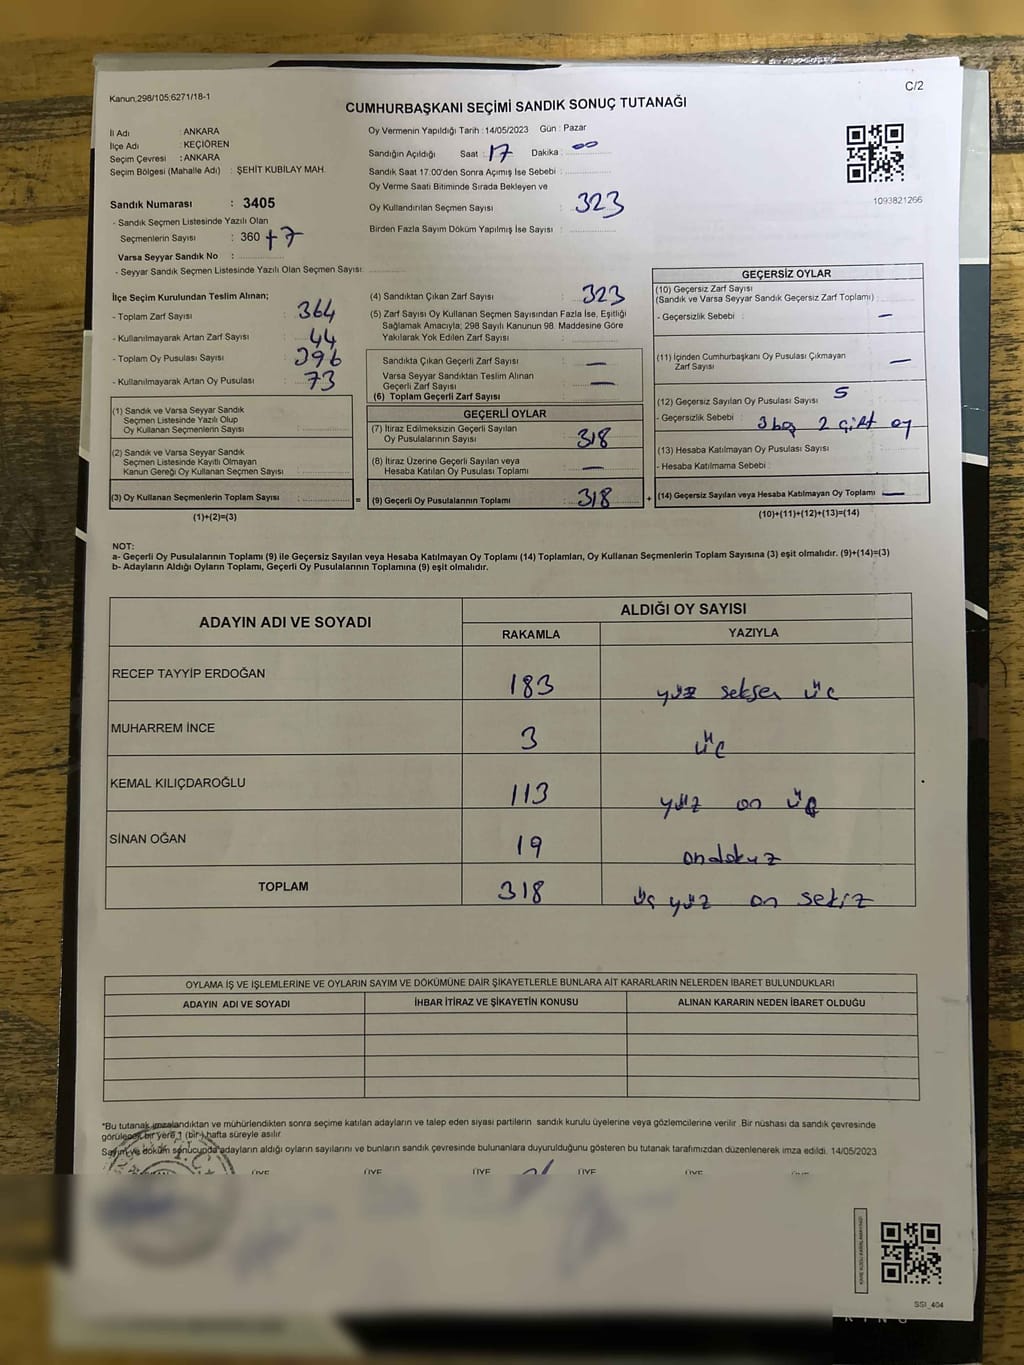 Kanun,298/105,6271/18-1
C/2
CUMHURBAŞKANI SEÇİMİ SANDIK SONUÇ TUTANAĞI
İl Adı : ANKARA
İlçe Adı : KEÇİÖREN
Seçim Çevresi : ANKARA
Seçim Bölgesi (Mahalle Adı) : ŞEHİT KUBİLAY MAH.
Sandık Numarası : 3405
- Sandık Seçmen Listesinde Yazılı Olan
Seçmenlerin Sayısı : 360 +7
Varsa Seyyar Sandık No :
- Seyyar Sandık Seçmen Listesinde Yazılı Olan Seçmen Sayısı:
Oy Vermenin Yapıldığı Tarih : 14/05/2023 Gün : Pazar
Sandığın Açıldığı Saat : 17 Dakika : 00
Sandık Saat 17:00'den Sonra Açımış İse Sebebi :
Oy Verme Saati Bitiminde Sırada Bekleyen ve
Oy Kullandırılan Seçmen Sayısı : 323
Birden Fazla Sayım Döküm Yapılmış İse Sayısı :
1093821266
İlçe Seçim Kurulundan Teslim Alınan;
- Toplam Zarf Sayısı : 364
- Kullanılmayarak Artan Zarf Sayısı : 44
- Toplam Oy Pusulası Sayısı : 396
- Kullanılmayarak Artan Oy Pusulası : 73
(1) Sandık ve Varsa Seyyar Sandık
Seçmen Listesinde Yazılı Olup
Oy Kullanan Seçmenlerin Sayısı :
(2) Sandık ve Varsa Seyyar Sandık
Seçmen Listesinde Kayıtlı Olmayan
Kanun Gereği Oy Kullanan Seçmen Sayısı :
(3) Oy Kullanan Seçmenlerin Toplam Sayısı : =
(1)+(2)=(3)
(4) Sandıktan Çıkan Zarf Sayısı : 323
(5) Zarf Sayısı Oy Kullanan Seçmen Sayısından Fazla İse, Eşitliği
Sağlamak Amacıyla; 298 Sayılı Kanunun 98. Maddesine Göre
Yakılarak Yok Edilen Zarf Sayısı :
Sandıkta Çıkan Geçerli Zarf Sayısı : —
Varsa Seyyar Sandıktan Teslim Alınan
Geçerli Zarf Sayısı : —
(6) Toplam Geçerli Zarf Sayısı :
GEÇERLİ OYLAR
(7) İtiraz Edilmeksizin Geçerli Sayılan
Oy Pusulalarının Sayısı : 318
(8) İtiraz Üzerine Geçerli Sayılan veya
Hesaba Katılan Oy Pusulası Toplamı : —
(9) Geçerli Oy Pusulalarının Toplamı : 318 +
GEÇERSİZ OYLAR
(10) Geçersiz Zarf Sayısı
(Sandık ve Varsa Seyyar Sandık Geçersiz Zarf Toplamı) :
- Geçersizlik Sebebi : —
(11) İçinden Cumhurbaşkanı Oy Pusulası Çıkmayan
Zarf Sayısı : —
(12) Geçersiz Sayılan Oy Pusulası Sayısı : 5
- Geçersizlik Sebebi : 3 boş 2 çift oy
(13) Hesaba Katılmayan Oy Pusulası Sayısı :
- Hesaba Katılmama Sebebi :
(14) Geçersiz Sayılan veya Hesaba Katılmayan Oy Toplamı : —
(10)+(11)+(12)+(13)=(14)
NOT:
a- Geçerli Oy Pusulalarının Toplamı (9) ile Geçersiz Sayılan veya Hesaba Katılmayan Oy Toplamı (14) Toplamları, Oy Kullanan Seçmenlerin Toplam Sayısına (3) eşit olmalıdır. (9)+(14)=(3)
b- Adayların Aldığı Oyların Toplamı, Geçerli Oy Pusulalarının Toplamına (9) eşit olmalıdır.
ADAYIN ADI VE SOYADI ALDIĞI OY SAYISI
RAKAMLA YAZIYLA
RECEP TAYYİP ERDOĞAN 183 yüz seksen üç
MUHARREM İNCE 3 üç
KEMAL KILIÇDAROĞLU 113 yüz on üç
SİNAN OĞAN 19 ondokuz
TOPLAM 318 üç yüz on sekiz
OYLAMA İŞ VE İŞLEMLERİNE VE OYLARIN SAYIM VE DÖKÜMÜNE DAİR ŞİKAYETLERLE BUNLARA AİT KARARLARIN NELERDEN İBARET BULUNDUKLARI
ADAYIN ADI VE SOYADI İHBAR İTİRAZ VE ŞİKAYETİN KONUSU ALINAN KARARIN NEDEN İBARET OLDUĞU
*Bu tutanak imzalandıktan ve mühürlendikten sonra seçime katılan adayların ve talep eden siyasi partilerin sandık kurulu üyelerine veya gözlemcilerine verilir. Bir nüshası da sandık çevresinde
görülecek bir yere 1 (bir) hafta süreyle asılır
Sayım ve döküm sonucunda adayların aldığı oyların sayılarını ve bunların sandık çevresinde bulunanlara duyurulduğunu gösteren bu tutanak tarafımızdan düzenlenerek imza edildi. 14/05/2023
ÜYE ÜYE ÜYE ÜYE ÜYE ÜYE
SSI_404